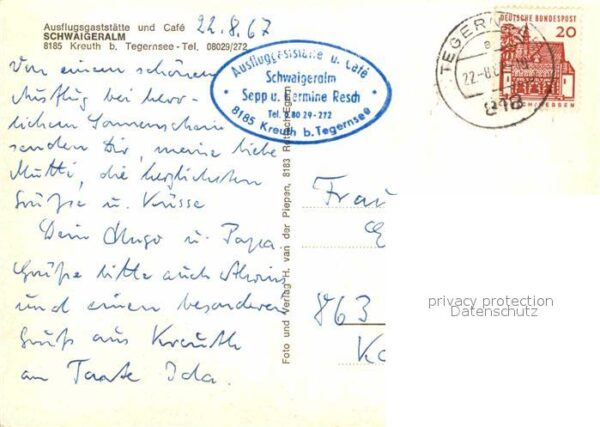 Ausflugsgaststätte und Café
SCHWAIGERALM
8185 Kreuth b. Tegernsee - Tel. 08029/272
22.8.67
Von einem schönen
Ausflug bei herr-
lichem Sonnenschein
senden Dir, meine liebe
Mutti, die herzlichsten
Grüße u. Küsse
Dein Hugo u. Papa.
Grüße bitte auch
und einen besonderen
Gruß aus Kreuth
an Tante Ida.
Ausfluggaststätte u. Café
Schwaigeralm
Sepp u. Hermine Resch
Tel. 0 80 29-272
8185 Kreuth b. Tegernsee
Foto und Verlag H. van der Piepen, 8183 Rottach-Egern
TEGERNSEE
22.-8.67
818
DEUTSCHE BUNDESPOST
20
Frau
863
Ko
privacy protection
Datenschutz